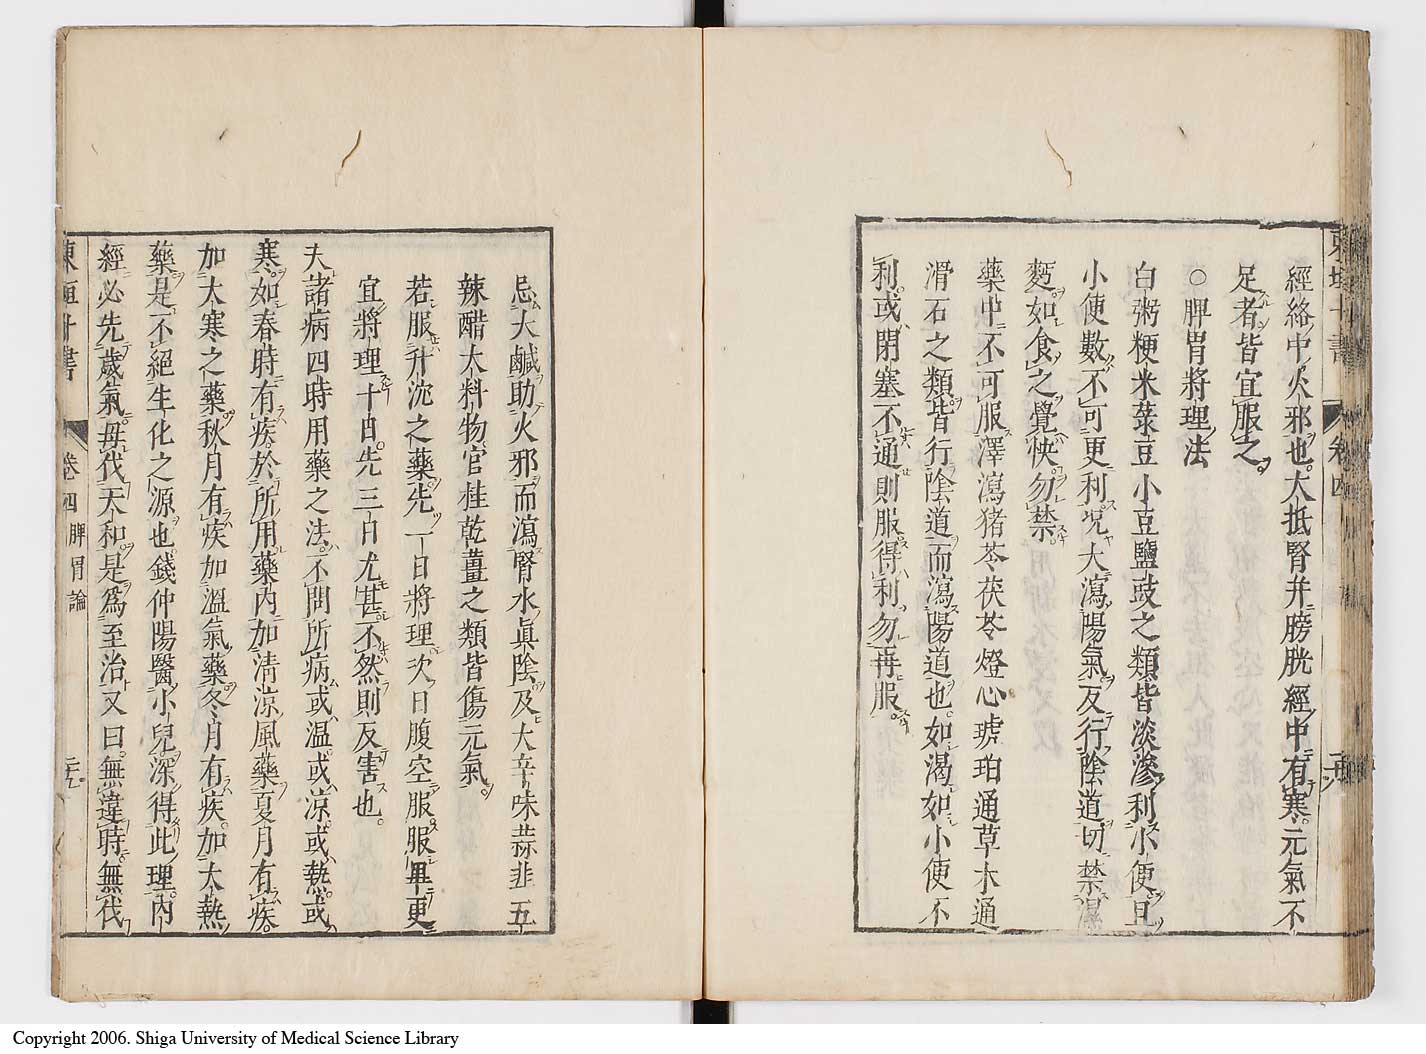 經絡中火邪也大抵腎并膀胱經中有寒元氣不
足者皆宜服之
○脾胃將理法
白粥粳米菉豆小豆鹽豉之類皆淡滲利小便且
小便數不可更利況大瀉陽氣反行陰道切禁濕
麪如食之覺快勿禁
藥中不可服澤瀉猪苓茯苓燈心琥珀通草木通
滑石之類皆行陰道而瀉陽道也如渴如小便不
利或閉塞不通則服得利勿再服
忌大鹹助火邪而瀉腎水眞陰及大辛味蒜韭五
辣醋大料物官桂乾薑之類皆傷元氣
若服升沈之藥先一日將理次日腹空服服畢更
宜將理十日先三日尤甚不然則反害也
夫諸病四時用藥之法不問所病或温或凉或熱或
寒如春時有疾於所用藥內加清凉風藥夏月有疾
加大寒之藥秋月有疾加溫氣藥冬月有疾加大熱
藥是不絕生化之源也錢仲陽醫小兒深得此理內
經必先歲氣毋伐天和是爲至治又曰無違時無伐
東垣十書 卷四 脾胃論 二十九
Copyright 2006. Shiga University of Medical Science Library